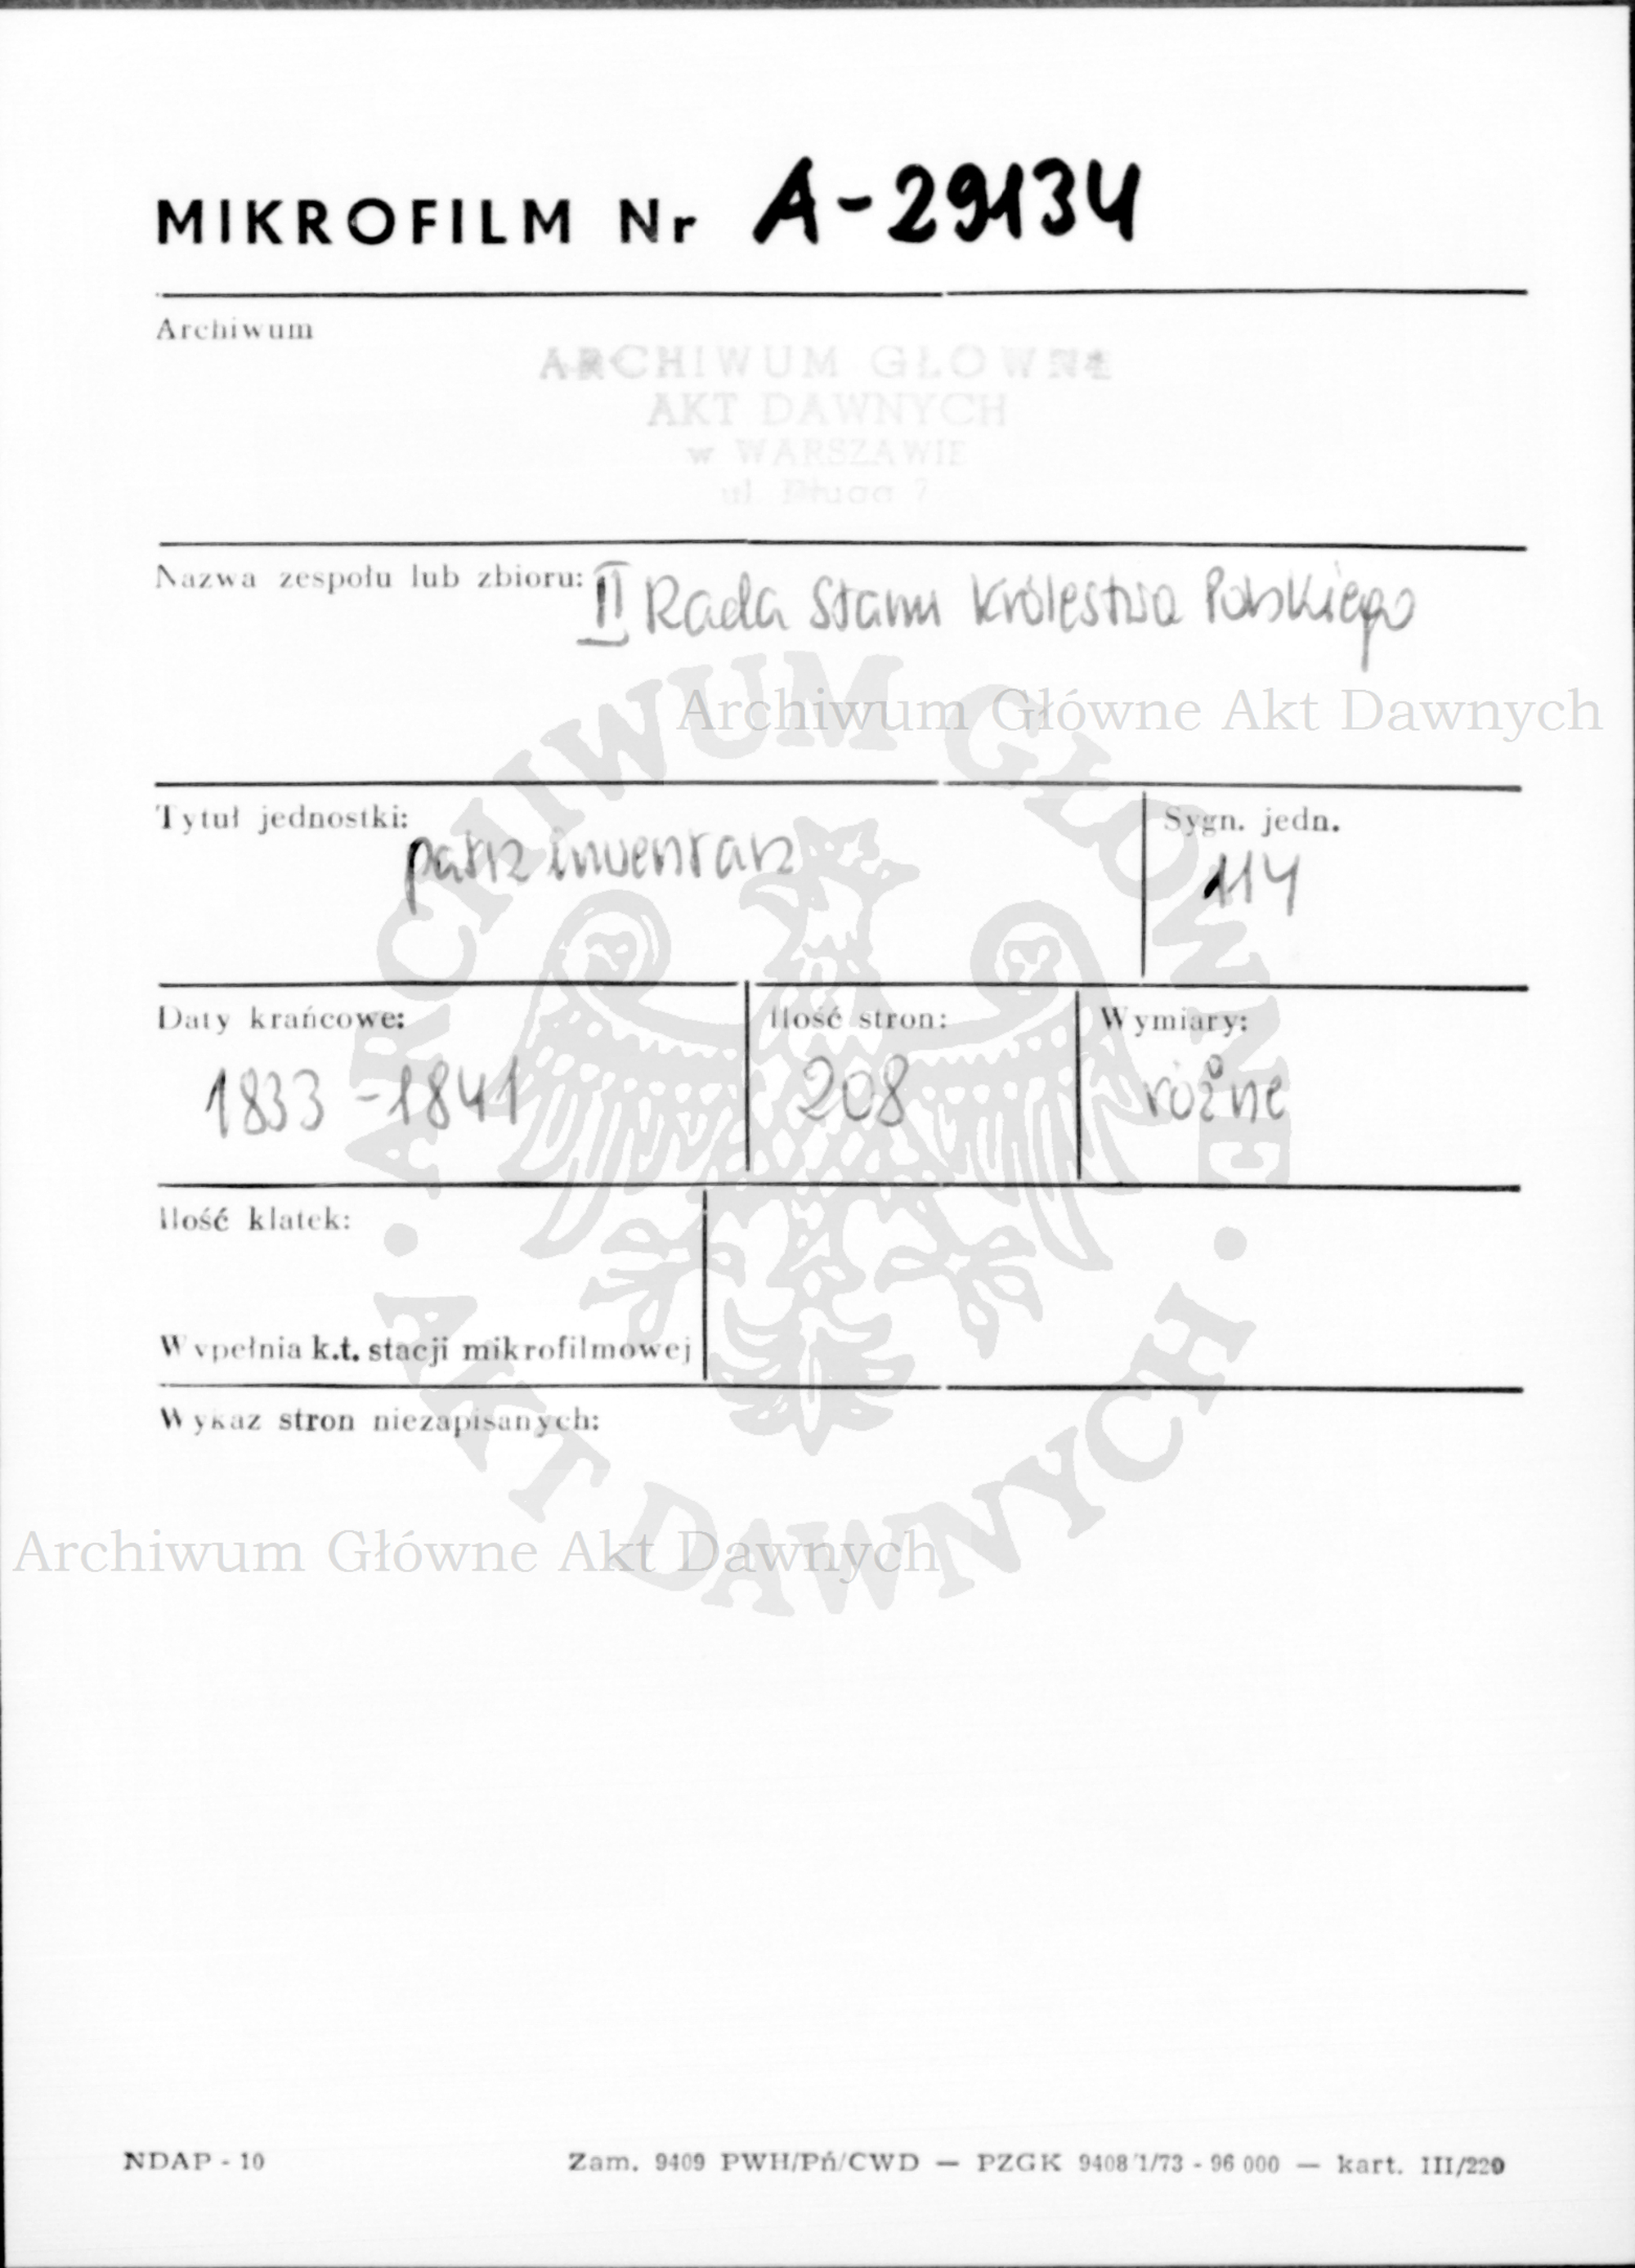 MIKROFILM Nr A-29134
Archiwum
ARCHIWUM GŁOWNE
AKT DAWNYCH
w WARSZAWIE
ul. Długa 7
Nazwa zespołu lub zbioru: II Rada Stanu Królestwa Polskiego
Archiwum Główne Akt Dawnych
Tytuł jednostki: patrz inwentarz
Sygn. jedn.
114
Daty krańcowe:
1833-1841
Ilość stron:
208
Wymiary:
różne
Ilość klatek:
Wypełnia k.t. stacji mikrofilmowej
Wykaz stron niezapisanych:
ARCHIWUM GŁÓWNE
AKT DAWNYCH
Archiwum Główne Akt Dawnych
NDAP - 10
Zam. 9409 PWH/Pń/CWD — PZGK 9408/1/73 - 96 000 — kart. III/220